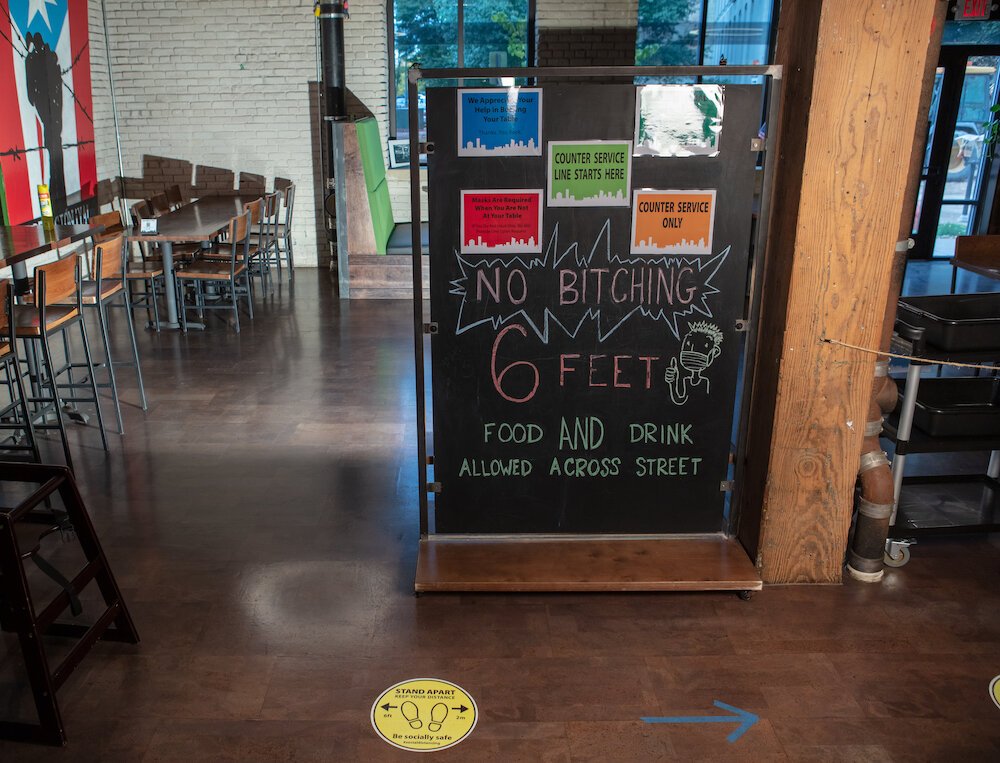 EXIT
We Appreciate Your
Help in Bussing
Your Table
Thank You
COUNTER SERVICE
LINE STARTS
HERE
Masks Are Required
When You Are Not
At Your Table
COUNTER SERVICE
ONLY
NO BITCHING
6 FEET
FOOD AND DRINK
ALLOWED ACROSS STREET
STAND APART
KEEP YOUR DISTANCE
6ft 2m
Be socially safe